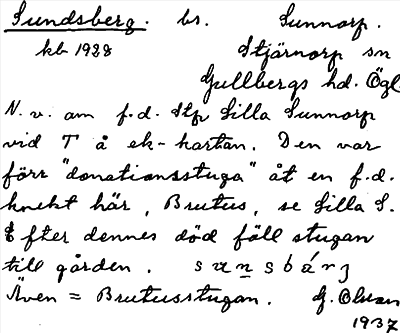 Sundsberg. bs. Sunnorp.
kb 1928 Stjärnorp sn
Gullbergs hd. Ögl.
N. v. om f.d. Stp Lilla Sunnorp
vid T å ek-kartan. Den var
förr "donationsstuga" åt en f.d.
knekt här, Brutus, se Lilla S.
Efter dennes död föll stugan
till gården. sunsbárj
Även = Brutusstugan. G. Olson
1937